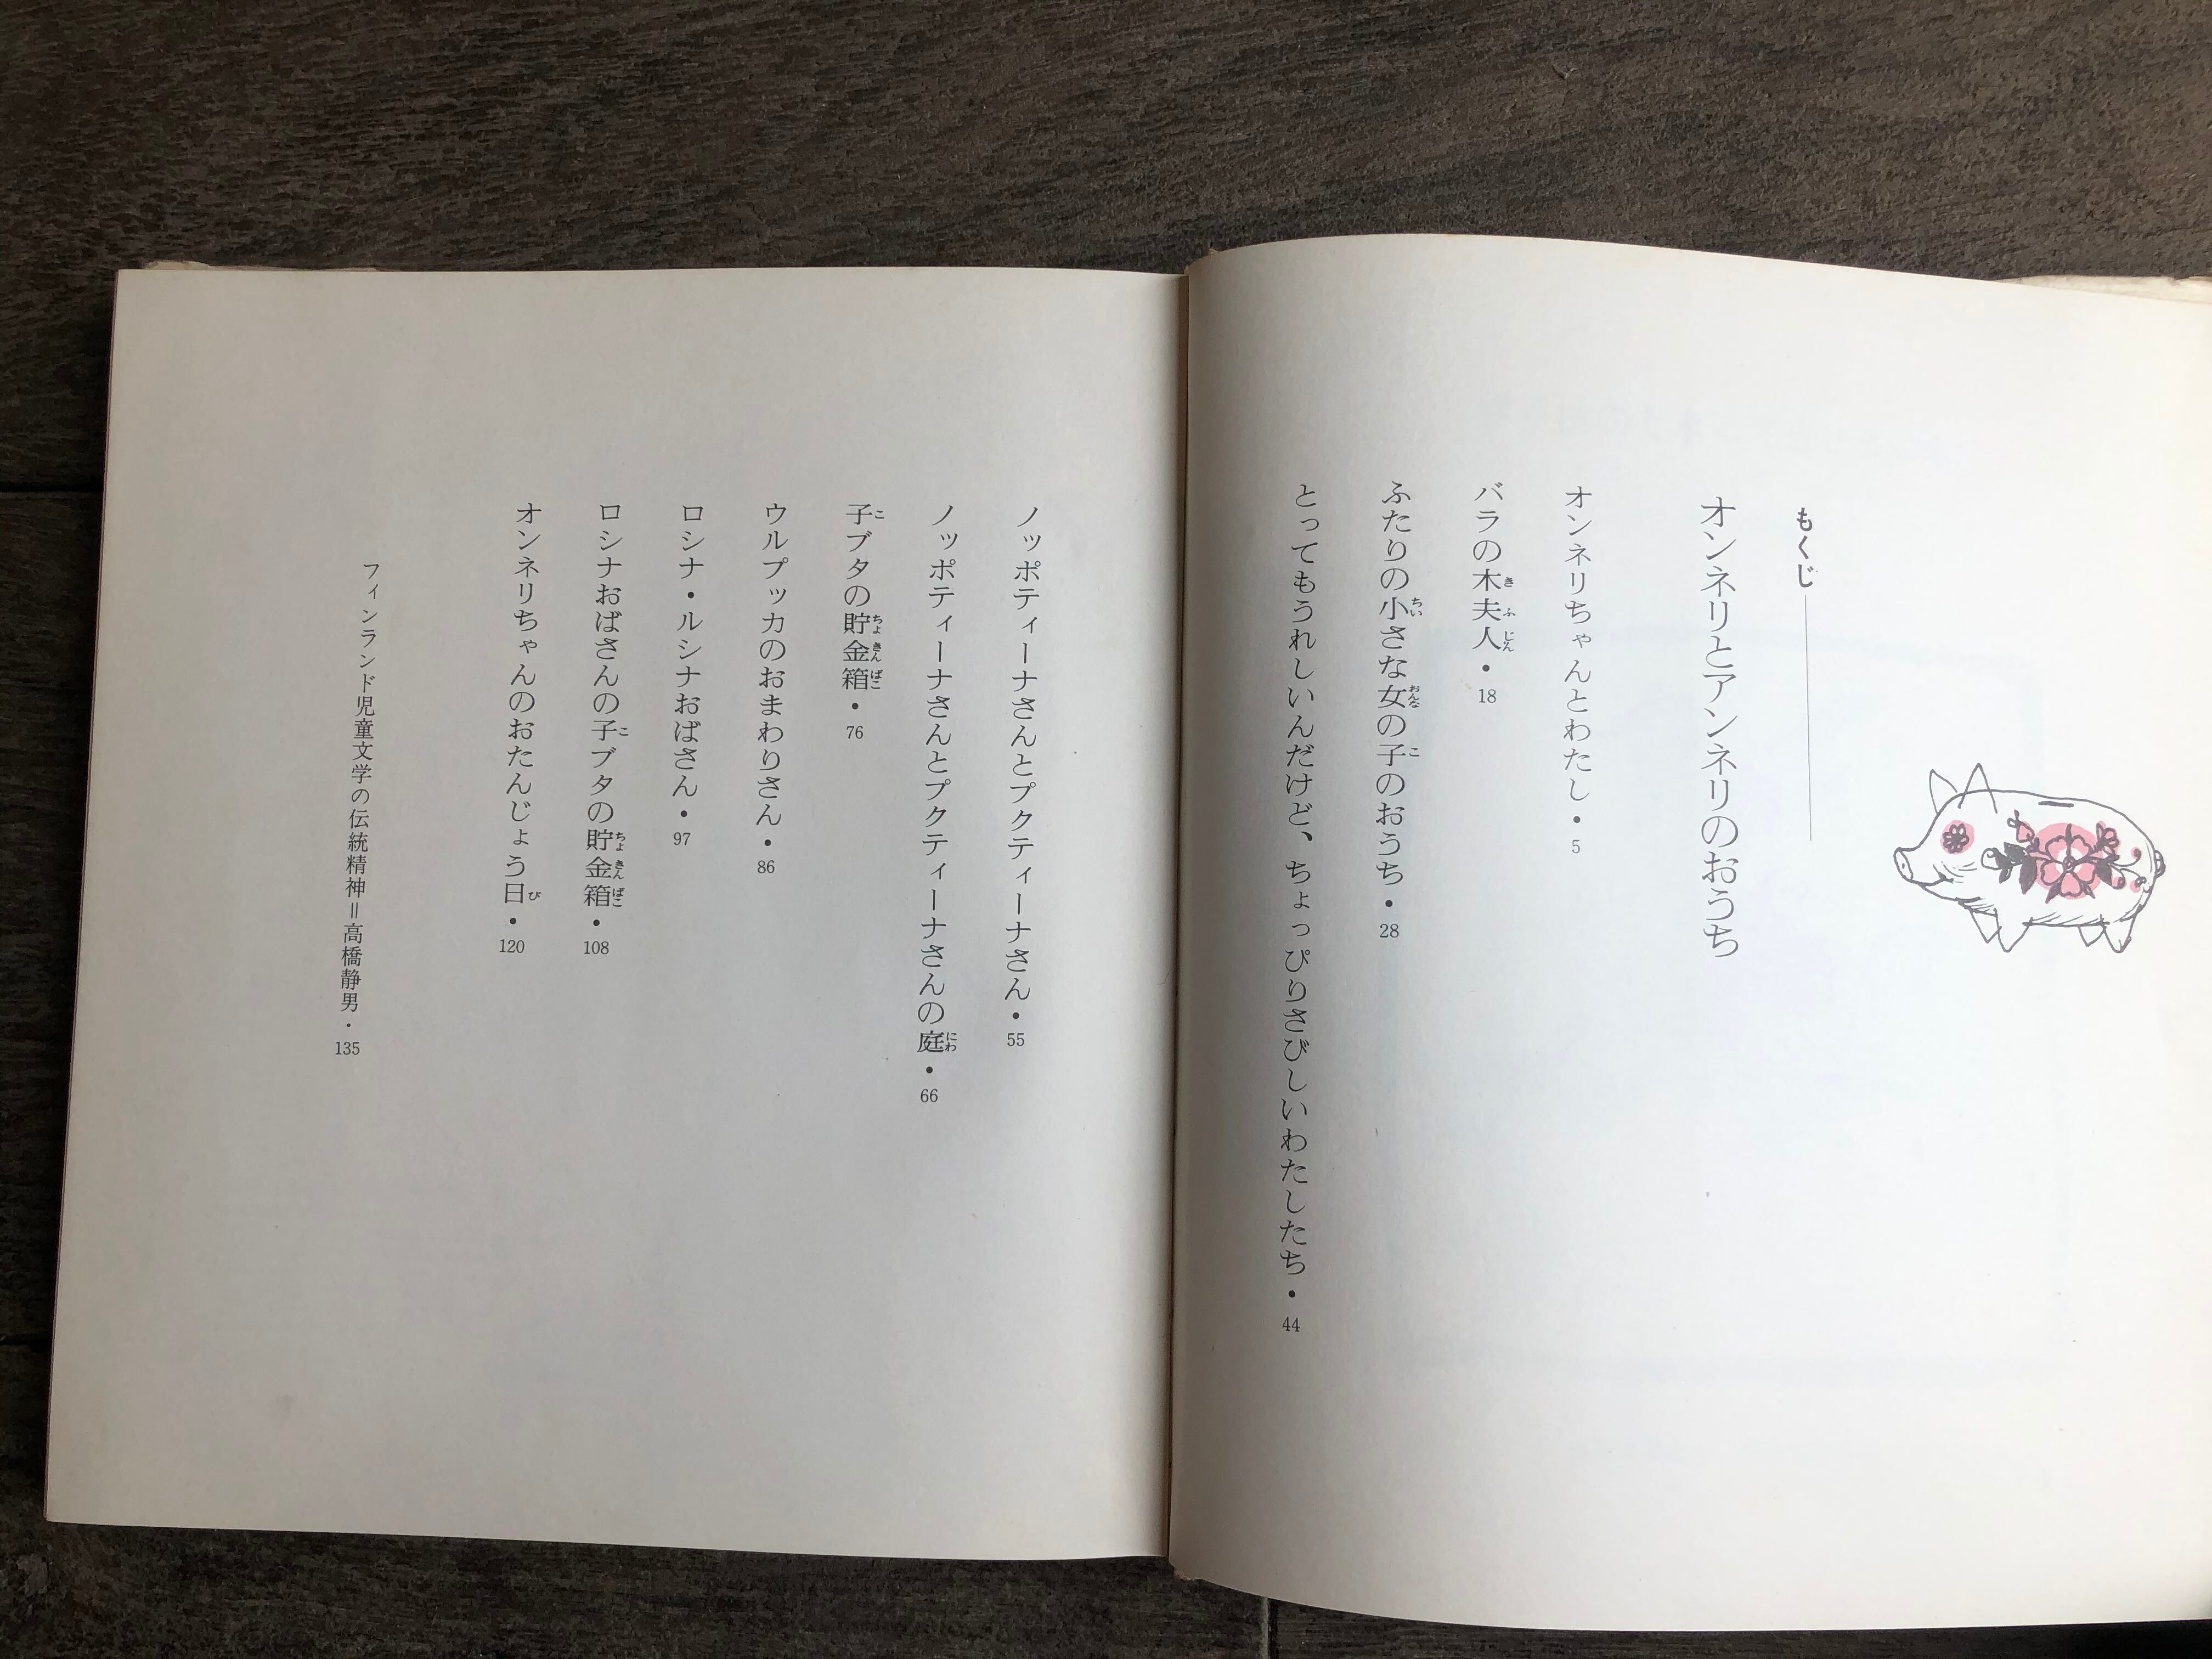 もくじ
オンネリとアンネリのおうち
オンネリちゃんとわたし・5
バラの木夫人・18
ふたりの小さな女の子のおうち・28
とってもうれしいんだけど、ちょっぴりさびしいわたしたち・44
ノッポティーナさんとプクティーナさん・55
ノッポティーナさんとプクティーナさんの庭・66
子ブタの貯金箱・76
ウルプッカのおまわりさん・86
ロシナ・ルシナおばさん・97
ロシナおばさんの子ブタの貯金箱・108
オンネリちゃんのおたんじょう日・120
フィンランド児童文学の伝統精神＝高橋静男・135